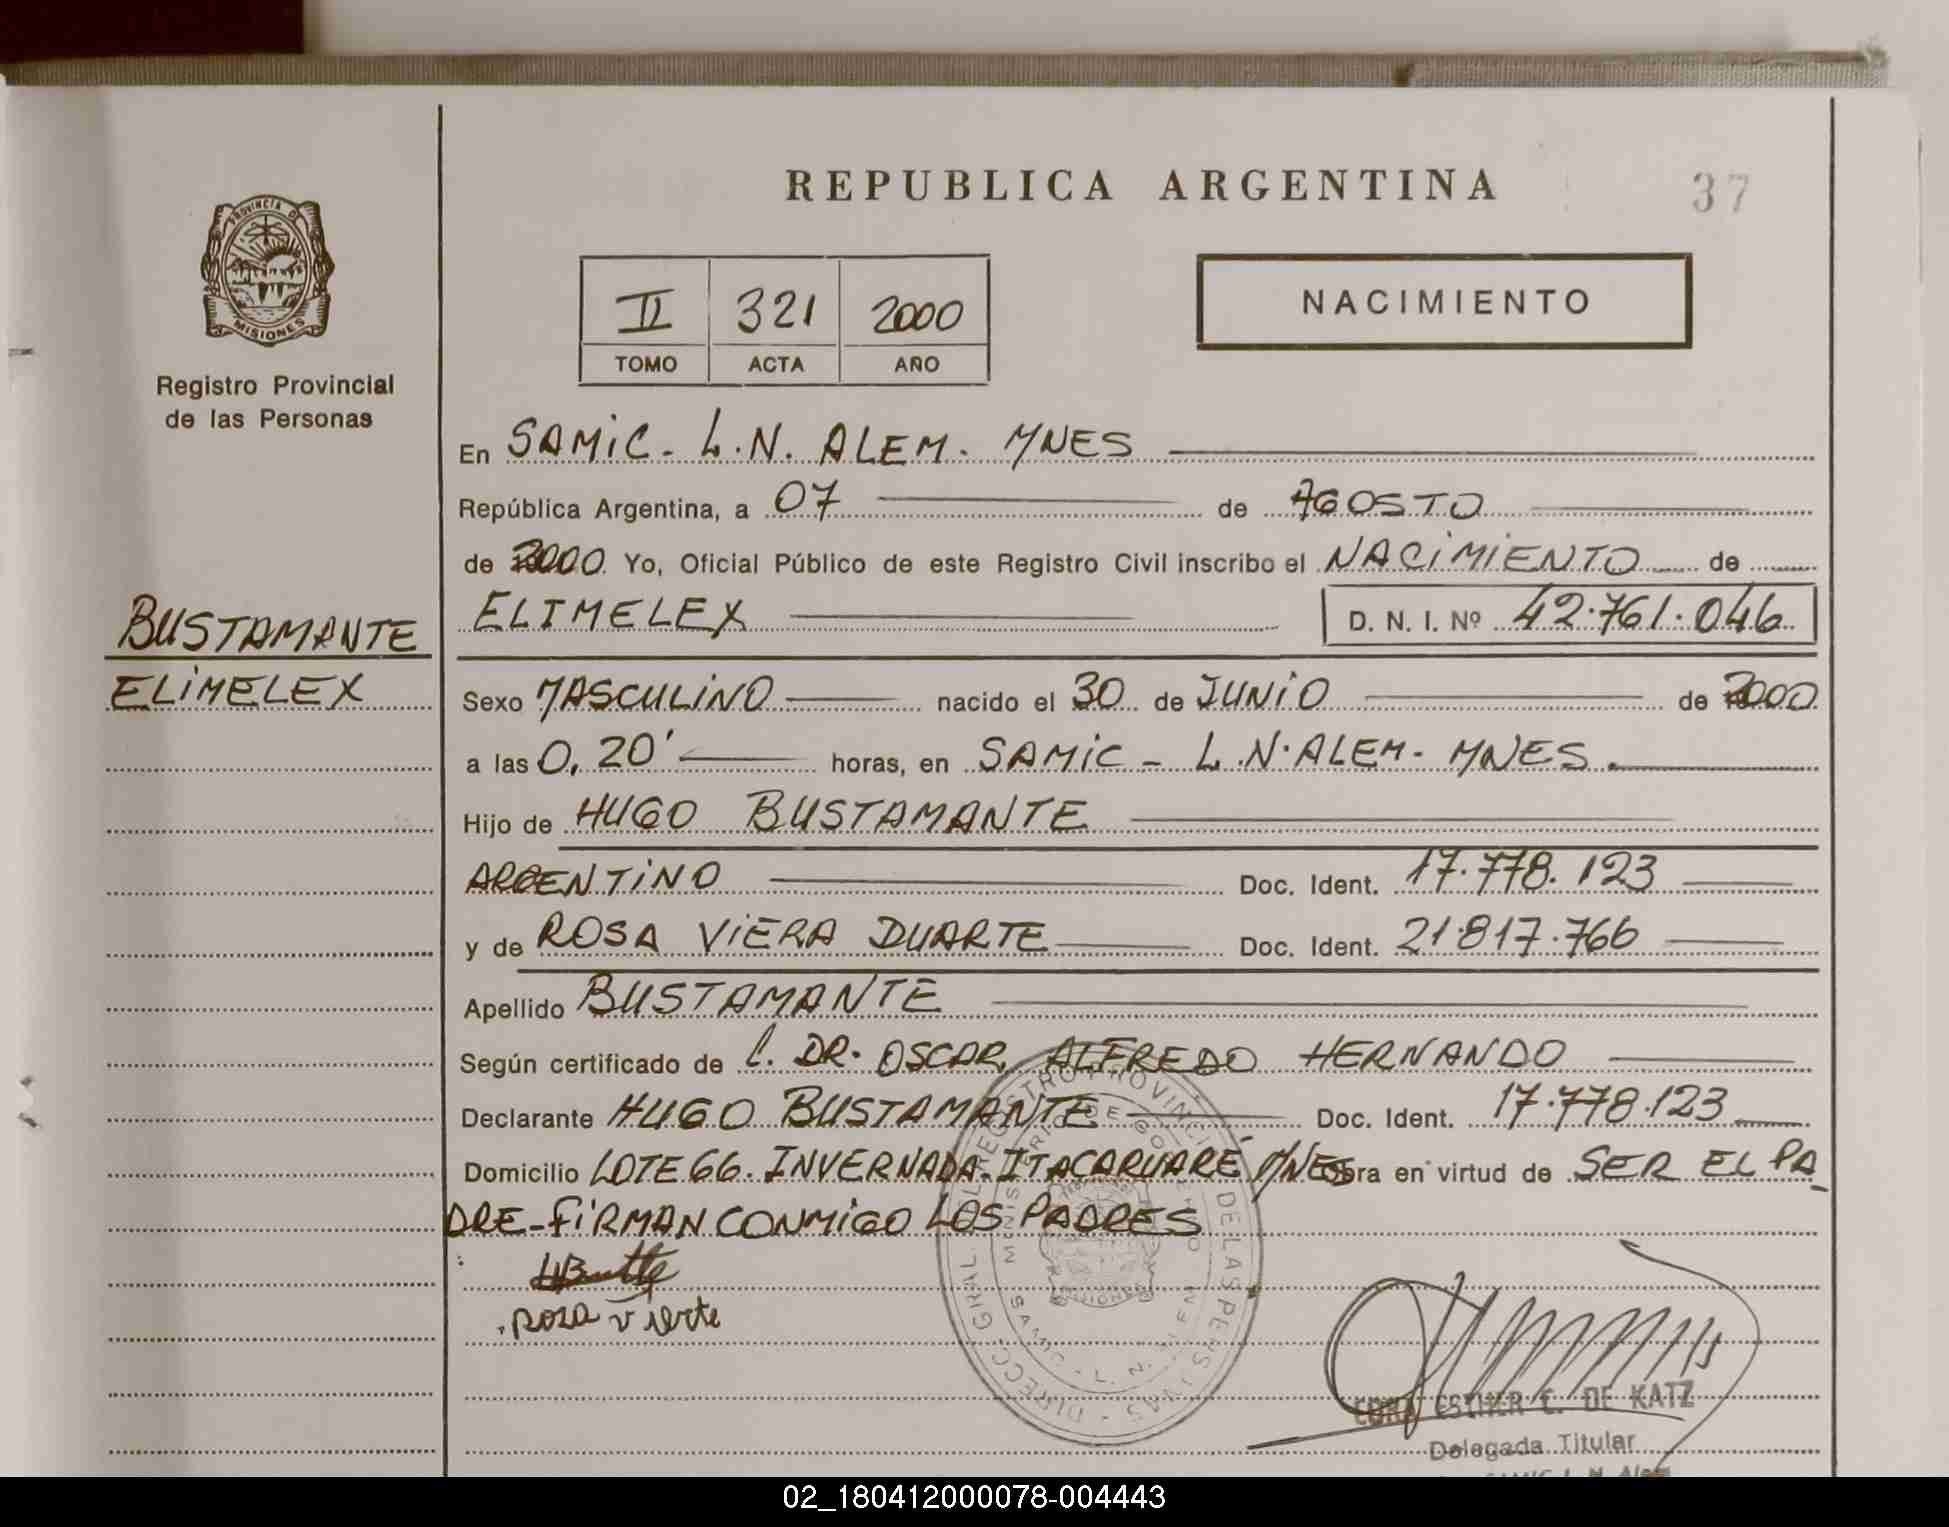 REPUBLICA ARGENTINA
37
PROVINCIA DE
MISIONES
Registro Provincial
de las Personas
II 321 2000
TOMO ACTA AÑO
NACIMIENTO
En SAMIC - L.N. ALEM - MNES
República Argentina, a 07 de AGOSTO
de 2000 Yo, Oficial Público de este Registro Civil inscribo el NACIMIENTO de
ELIMELEX D. N. I. Nº 42.761.046
BUSTAMANTE
ELIMELEX
Sexo MASCULINO nacido el 30 de JUNIO de 2000
a las 0,20' horas, en SAMIC - L.N. ALEM - MNES.
Hijo de HUGO BUSTAMANTE
ARGENTINO Doc. Ident. 17.778.123
y de ROSA VIERA DUARTE Doc. Ident. 21.817.766
Apellido BUSTAMANTE
Según certificado de l. DR. OSCAR ALFREDO HERNANDO
Declarante HUGO BUSTAMANTE Doc. Ident. 17.778.123
Domicilio LOTE 66. INVERNADA - ITACARUARÉ MNES Obra en virtud de SER EL PA-
DRE - FIRMAN CONMIGO LOS PADRES
DIRECC. GRAL. DEL REGISTRO PROVINCIAL DE LAS PERSONAS
MINISTERIO DE GOBIERNO
SAMIC - L. N. ALEM
ESTHER C. DE KATZ
Delegada Titular
SAMIC L. N. Alem
02_180412000078-004443